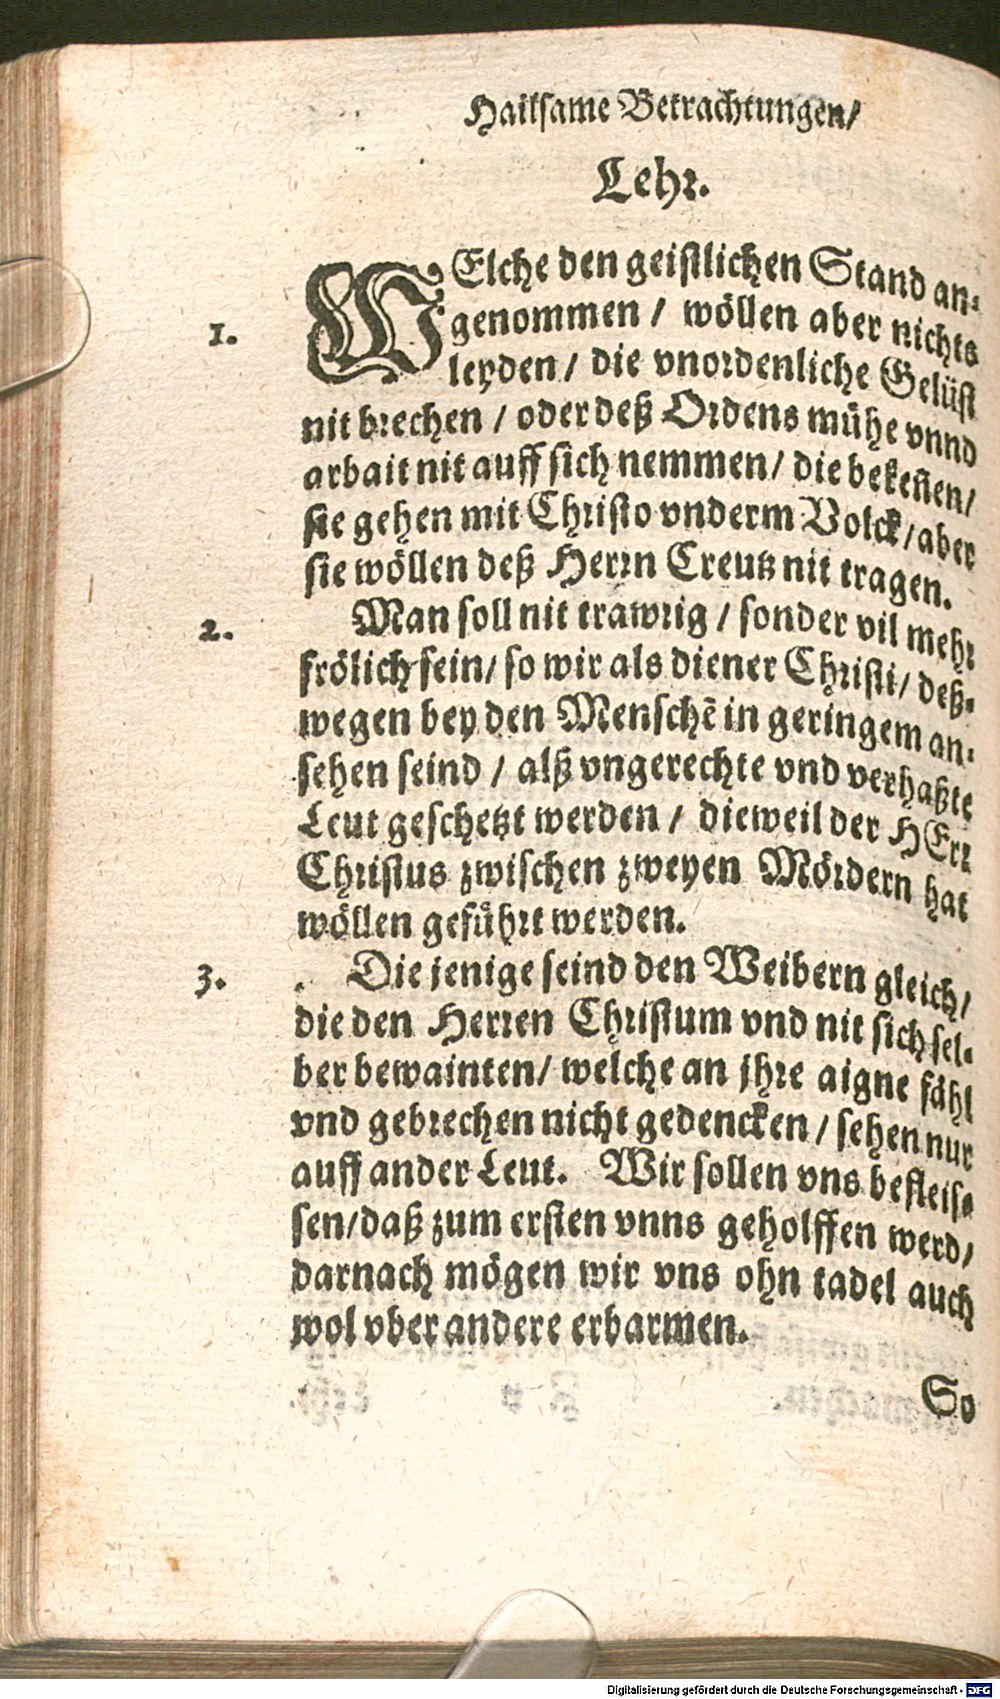 Hailsame Betrachtungen/
Lehr.
1.
WElche den geistlichen Stand an-
genommen / wöllen aber nichts
leyden / die vnordenliche Gelüst
nit brechen / oder deß Ordens mühe vnnd
arbait nit auff sich nemmen / die bekeñen /
sie gehen mit Christo vnderm Volck / aber
sie wöllen deß Herrn Creutz nit tragen.
2.
Man soll nit trawrig / sonder vil mehr
frölich sein / so wir als diener Christi / deß-
wegen bey den Menschẽ in geringem an-
sehen seind / alß vngerechte vnd verhaßte
Leut geschetzt werden / dieweil der HErr
Christus zwischen zweyen Mördern hat
wöllen geführt werden.
3.
Die jenige seind den Weibern gleich /
die den Herren Christum vnd nit sich sel-
ber bewainten / welche an jhre aigne fähl
vnd gebrechen nicht gedencken / sehen nur
auff ander Leut. Wir sollen vns befleis-
sen / daß zum ersten vnns geholffen werd /
darnach mögen wir vns ohn tadel auch
wol vber andere erbarmen.
So
Digitalisierung gefördert durch die Deutsche Forschungsgemeinschaft - DFG